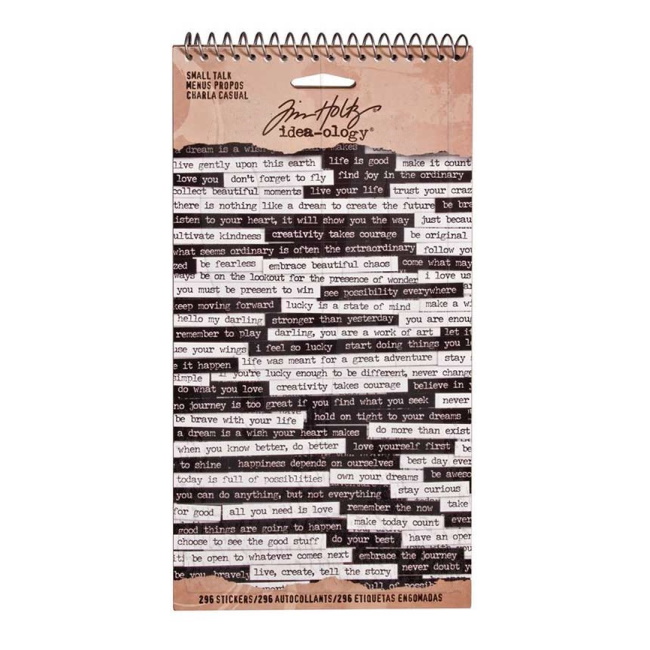 SMALL TALK
MENUS PROPOS
CHARLA CASUAL
Tim Holtz
idea-ology®
dream is a wish makes
live gently upon this earth life is good make it count
love you don't forget to fly find joy in the ordinary
collect beautiful moments live your life trust your craz
there is nothing like a dream to create the future be bra
isten to your heart, it will show you the way just becau
ultivate kindness creativity takes courage be original
what seems ordinary is often the extraordinary follow you
zed be fearless embrace beautiful chaos come what may
ways be on the lookout for the presence of wonder i love us
you must be present to win see possibility everywhere a
keep moving forward lucky is a state of mind make a w
hello my darling stronger than yesterday you are enou
remember to play darling, you are a work of art let i
use your wings i feel so lucky start doing things you l
e it happen life was meant for a great adventure stay
imple if you're lucky enough to be different, never change
do what you love creativity takes courage believe in y
no journey is too great if you find what you seek never
be brave with your life hold on tight to your dreams
a dream is a wish your heart makes do more than exist
when you know better, do better love yourself first be
to shine happiness depends on ourselves best day ever
today is full of possiblities own your dreams be aweso
you can do anything, but not everything stay curious
for good all you need is love remember the now take
good things are going to happen make today count ever
choose to see the good stuff do your best have an open
it be open to whatever comes next embrace the journey
be you bravely live, create, tell the story never doubt y
full of possib
296 STICKERS/296 AUTOCOLLANTS/296 ETIQUETAS ENGOMADAS